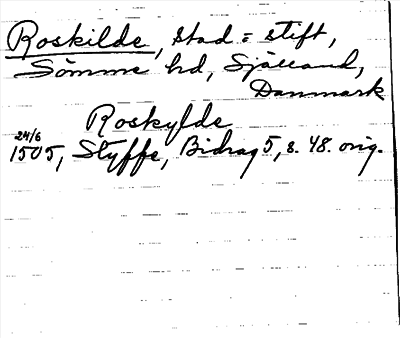 Roskilde, stad = stift,
Sömme hd, Själland,
Danmark
Roskylde
24/6
1505, Styffe, Bidrag 5, s. 48. orig.